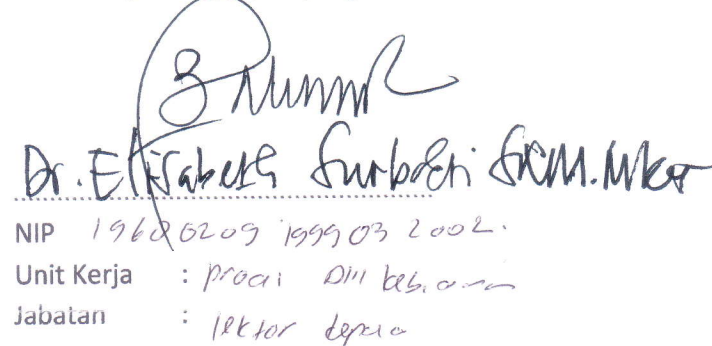 Dr. Elisabeth Surbakti SKM. MKes
NIP 19680209 199903 2002.
Unit Kerja : Prodi DIII kebidanan
Jabatan : lektor kepala